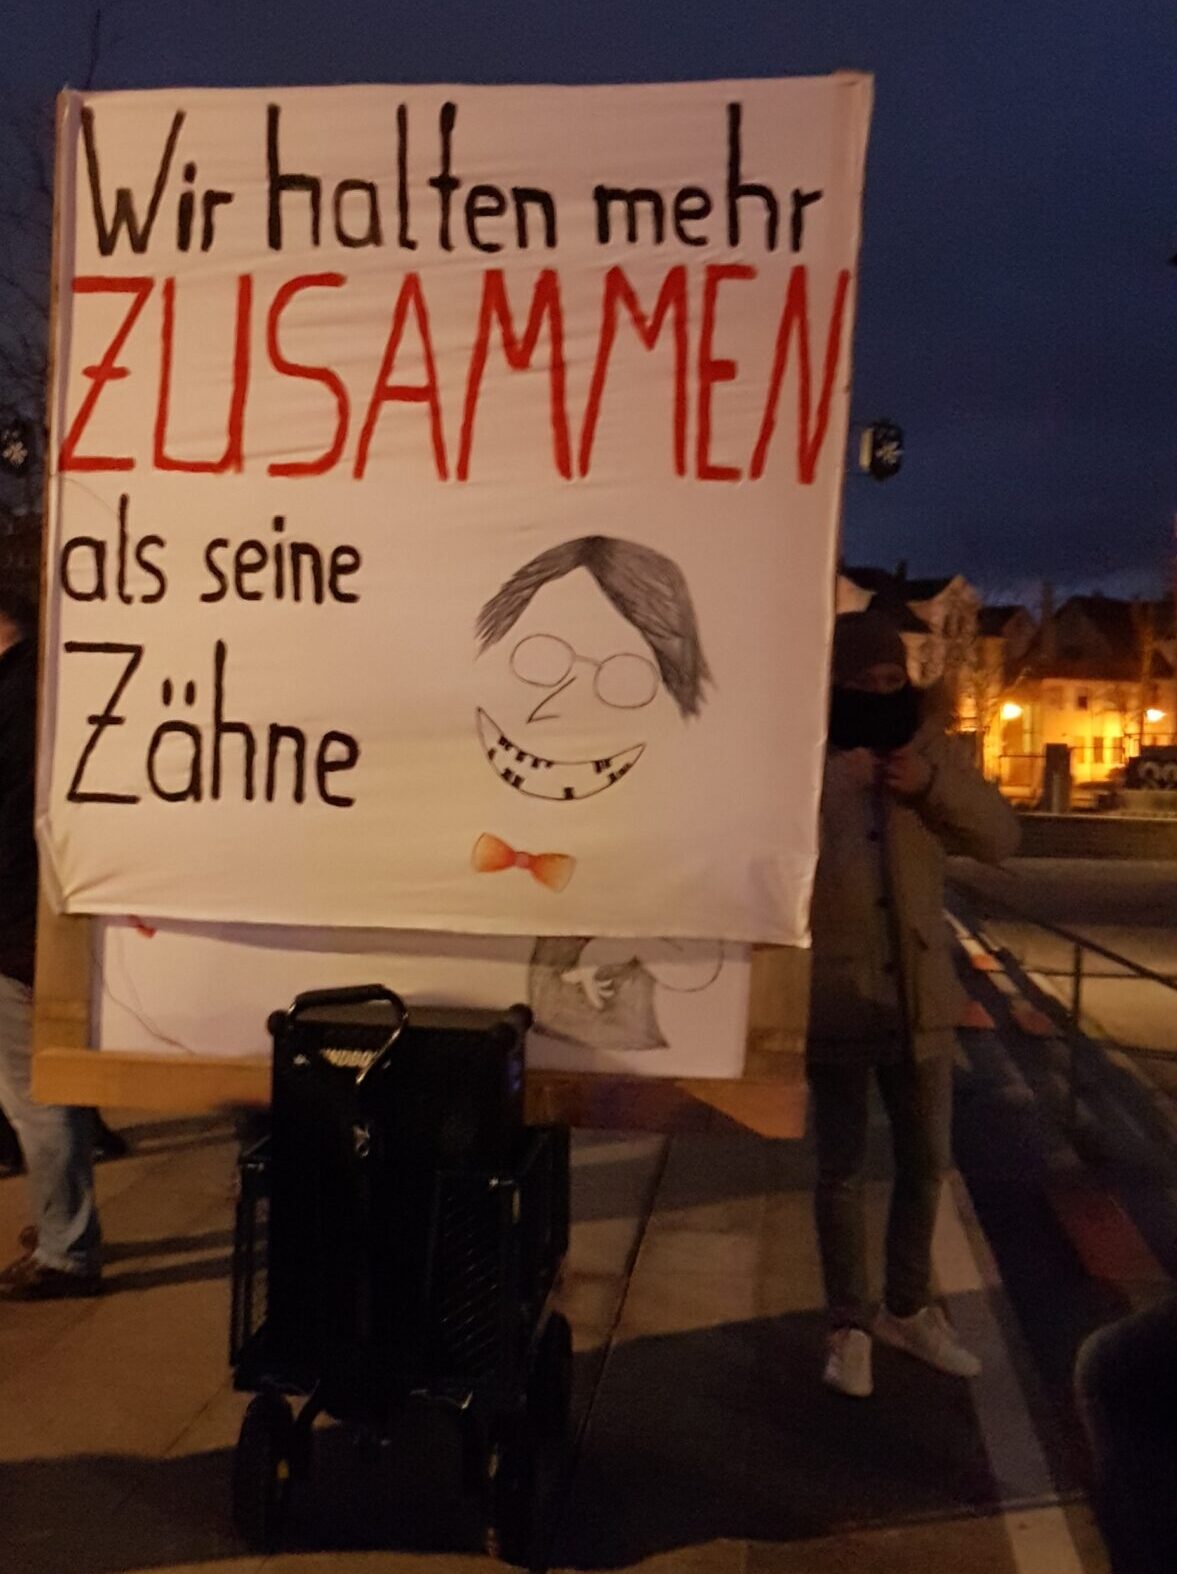 Wir halten mehr
ZUSAMMEN
als seine
Zähne